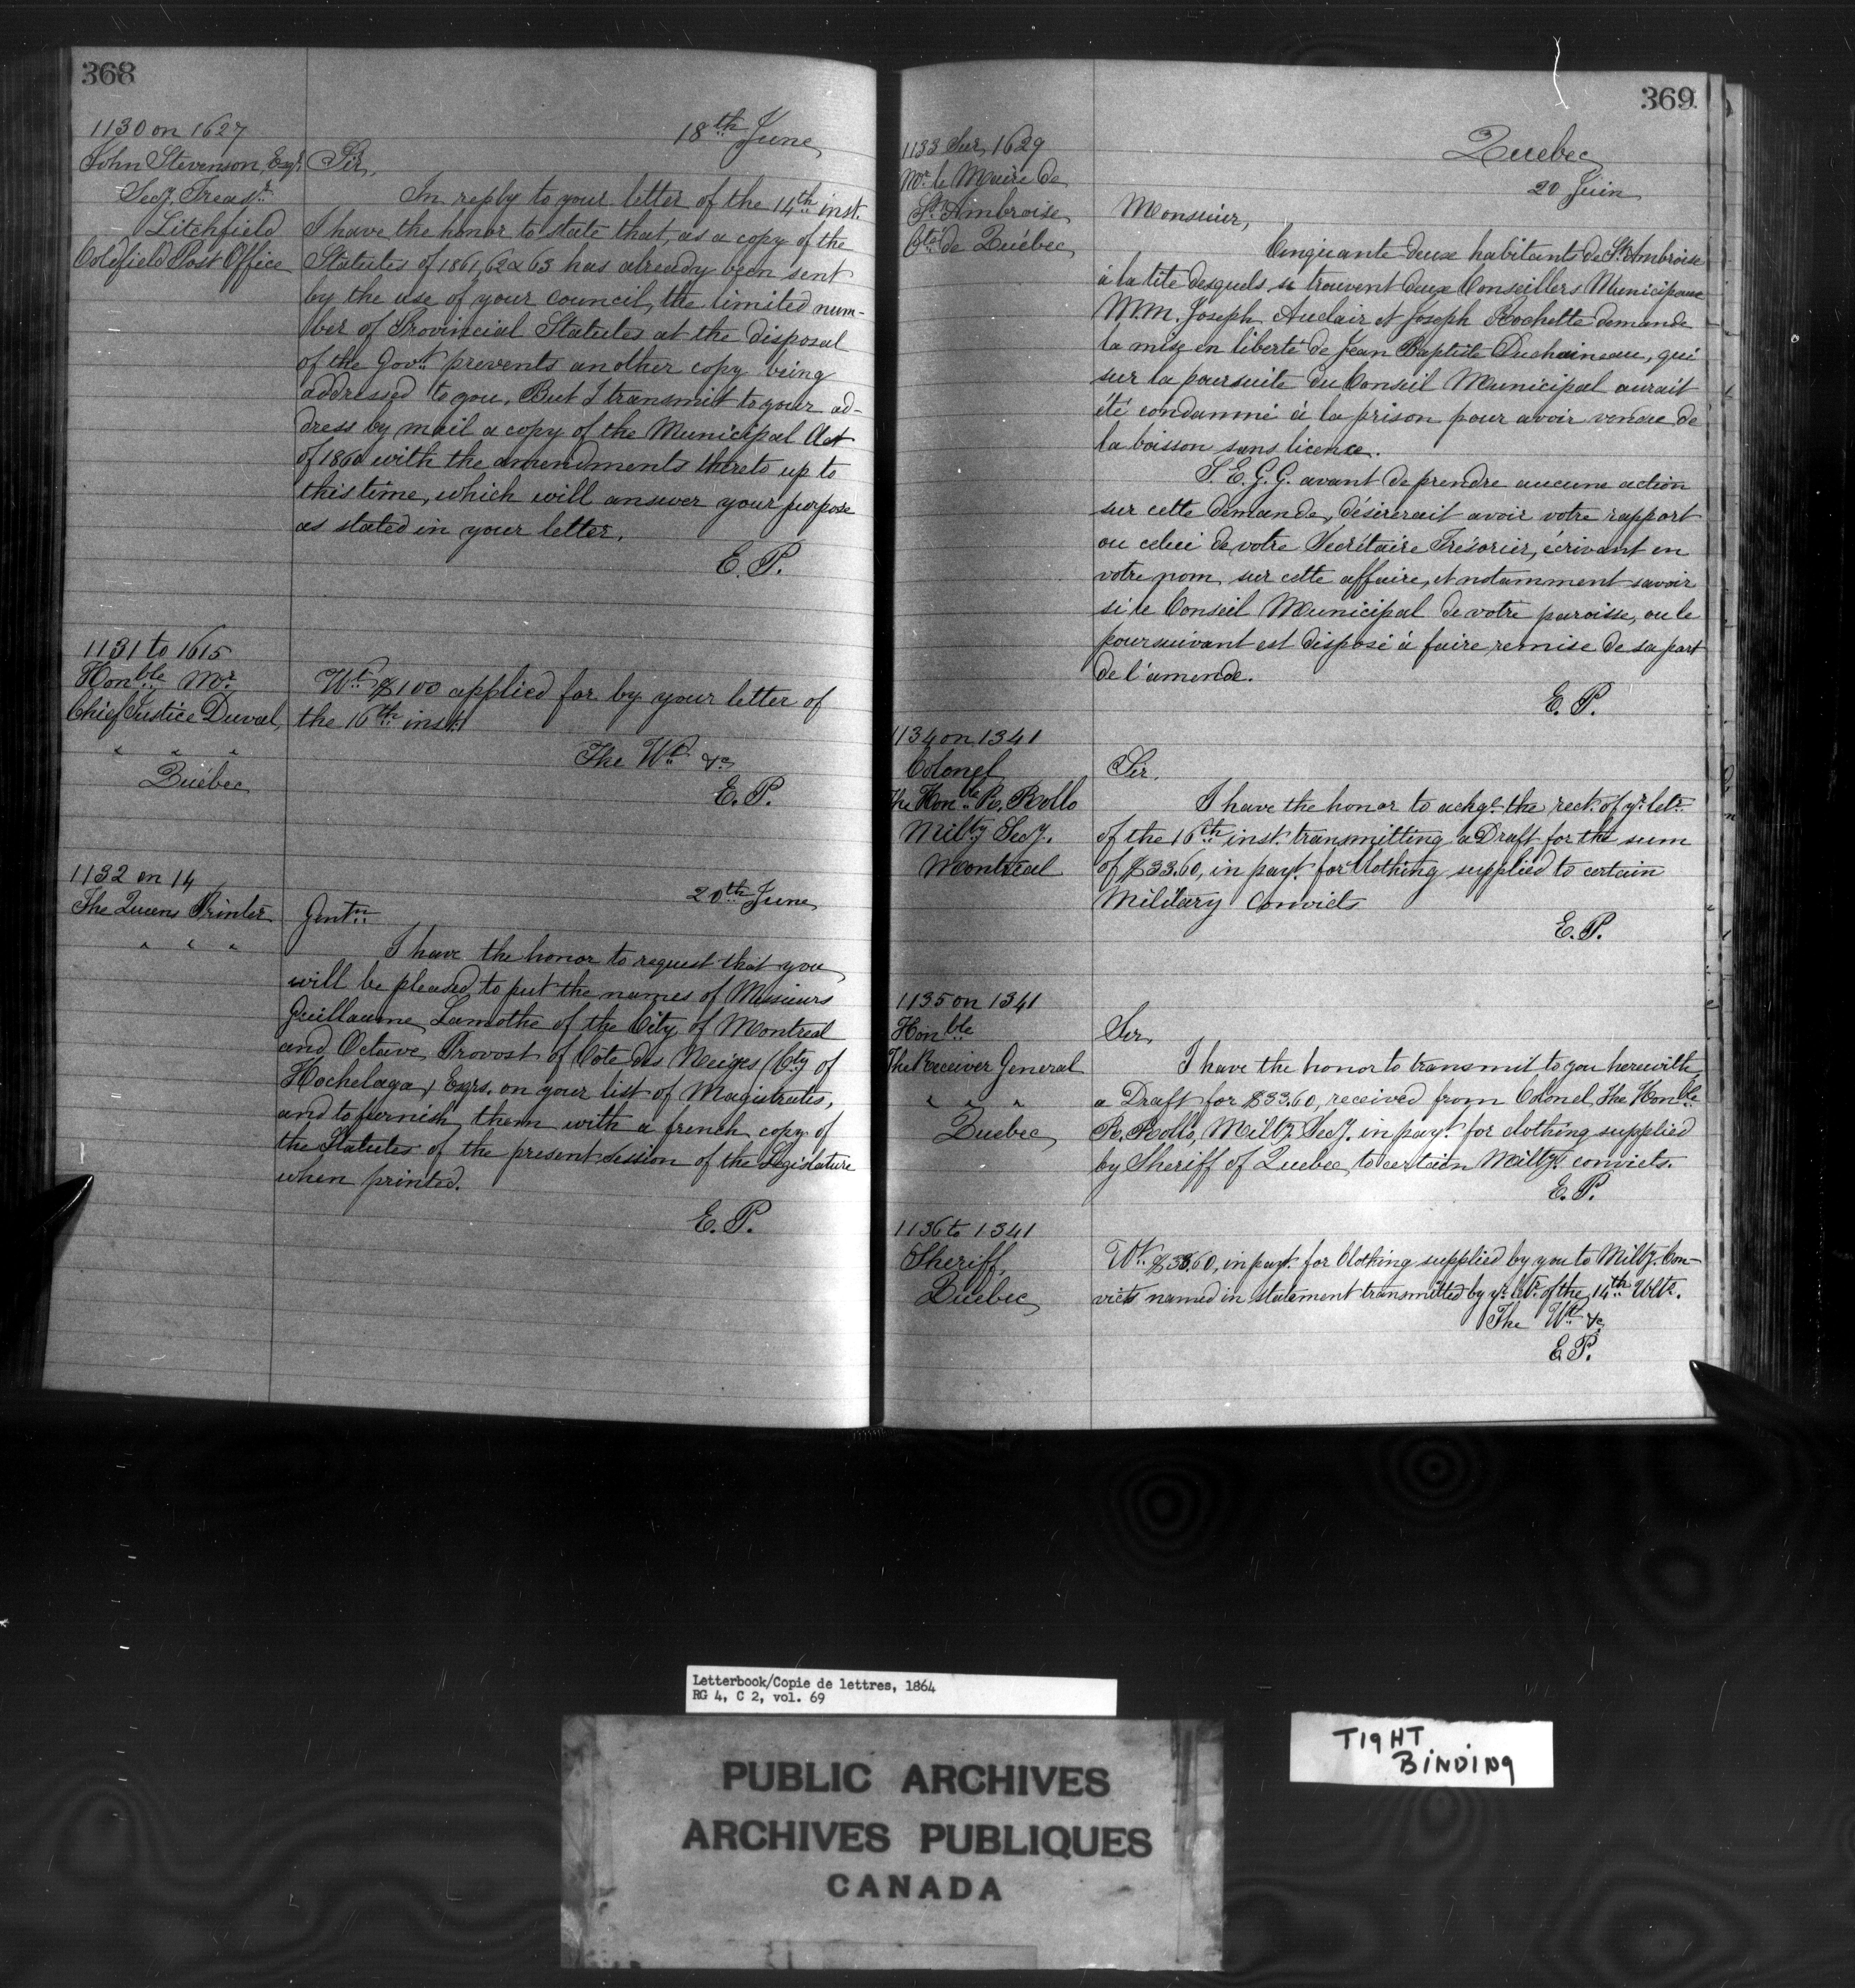 368
1130 on 1627
John Stevenson, Esqr.
Secy. Treasr.
Litchfield
Coldfield Post Office
18th June
Sir,
In reply to your letter of the 14th inst.
I have the honor to state that, as a copy of the
Statutes of 1861, 62 & 63 has already been sent
by the use of your council, the limited num-
ber of Provincial Statutes at the disposal
of the Govt. prevents another copy being
addressed to you. But I transmit to your ad-
dress by mail a copy of the Municipal Act
of 1860 with the amendments thereto up to
this time, which will answer your purpose
as stated in your letter.
E. P.
1131 to 1615
Honble Mr.
Chief Justice Duval,
" " "
Québec
Wt. $100 applied for by your letter of
the 16th inst.
The Wt. &c
E. P.
1132 on 14
The Queens Printer
" " "
20th June
Gentn
I have the honor to request that you
will be pleased to put the names of Messieurs
Guillaume Lamothe of the City of Montreal
and Octave Provost of Côte des Neiges (Cty of
Hochelaga) Esqrs. on your list of Magistrates,
and to furnish them with a french copy of
the Statutes of the present session of the Legislature
when printed.
E. P.
369
1133 Sur 1629
Mr. le Maire de
St. Ambroise
Cté. de Québec
Quebec
20 Juin
Monsieur,
Cinquante deux habitants de St. Ambroise
à la tête desquels se trouvent deux Conseillers Municipaux
M.M. Joseph Auclair et Joseph Rochette demande
la mise en liberté de Jean Baptiste Duchaineau, qui
sur la poursuite du Conseil Municipal aurait
été condamné à la prison pour avoir vendre de
la boisson sans licence.
S. E. G. G. avant de prendre aucune action
sur cette demande, désirerait avoir votre rapport
ou celui de votre Secrétaire Trésorier, écrivant en
votre nom, sur cette affaire, et notamment savoir
si le Conseil Municipal de votre paroisse, ou le
poursuivant est disposé à faire remise de sa part
de l'amende.
E. P.
1134 on 1341
Colonel
The Honble R. Rollo
Milty Secy.
Montreal
Sir,
I have the honor to ackge. the rect. of yr. letr.
of the 16th inst. transmitting a Draft for the sum
of $33.60, in payt. for Clothing supplied to certain
Military Convicts
E. P.
1135 on 1341
Honble
The Receiver General
" " "
Quebec
Sir,
I have the honor to transmit to you herewith
a Draft for $33.60, received from Colonel The Honble
R. Rollo, Milty Secy. in payt. for clothing supplied
by Sheriff of Quebec to certain Milty. convicts.
E. P.
1136 to 1341
Sheriff,
Quebec
Wt. $33.60, in payt. for Clothing supplied by you to Milty. Con-
victs named in statement transmitted by yr. letr. of the 14th Ulto.
The Wt. &c
E P.
Letterbook/Copie de lettres, 1864
RG 4, C 2, vol. 69
PUBLIC ARCHIVES
ARCHIVES PUBLIQUES
CANADA
TIGHT
BINDING